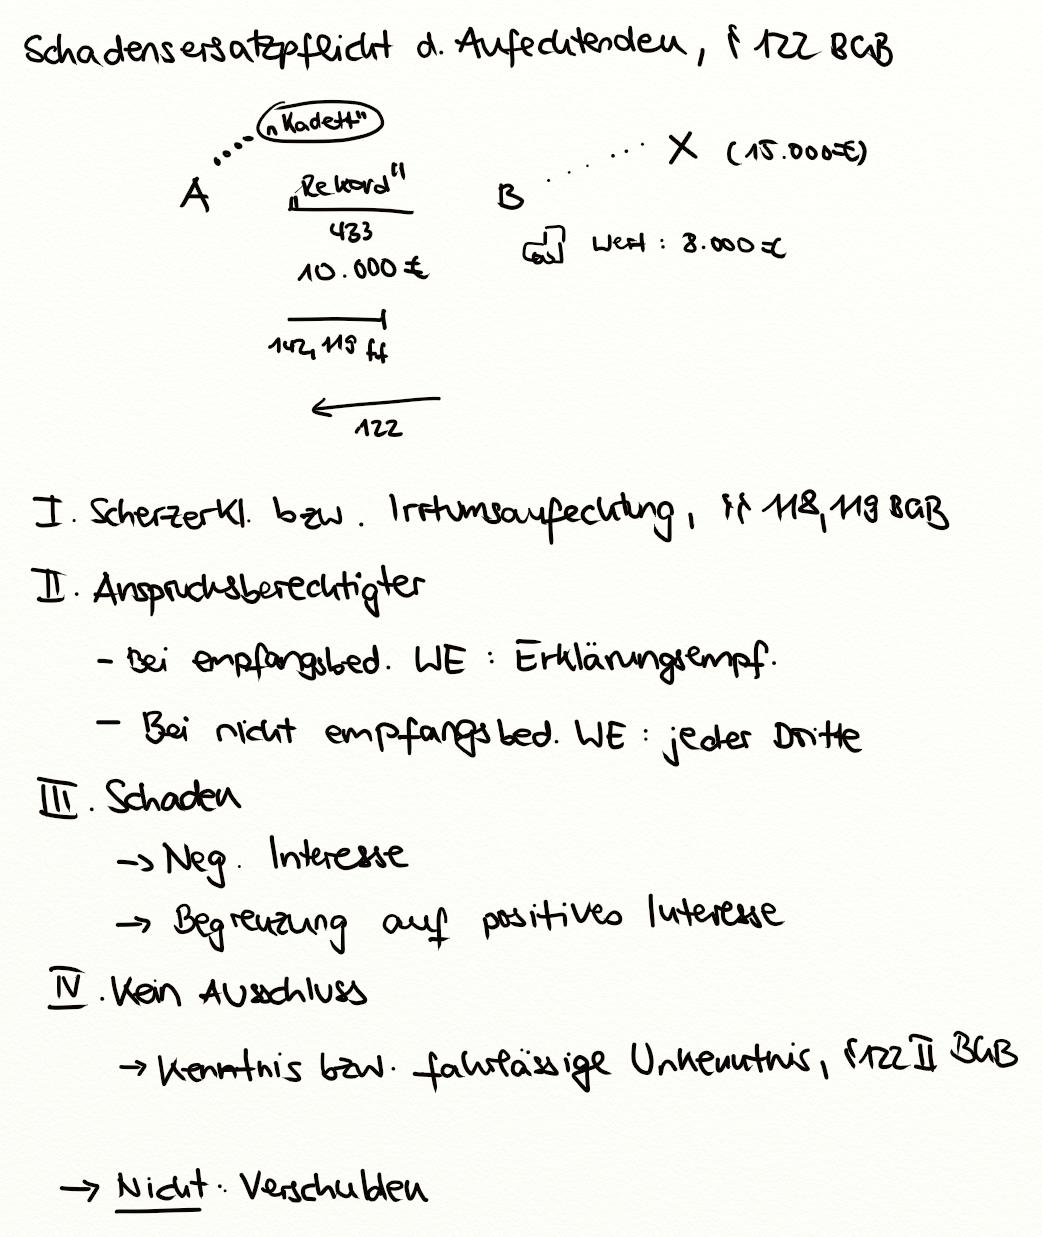 Schadensersatzpflicht d. Anfechtenden, § 122 BGB
„Kadett"
X (15.000€)
A „Rekord" B
433 Wert: 8.000€
10.000€
142, 119 ff
122
I. Scherzerkl. bzw. Irrtumsanfechtung, §§ 118, 119 BGB
II. Anspruchsberechtigter
- Bei empfangsbed. WE: Erklärungsempf.
- Bei nicht empfangsbed. WE: jeder Dritte
III. Schaden
→ Neg. Interesse
→ Begrenzung auf positives Interesse
IV. Kein Ausschluss
→ Kenntnis bzw. fahrlässige Unkenntnis, § 122 II BGB
→ Nicht: Verschulden